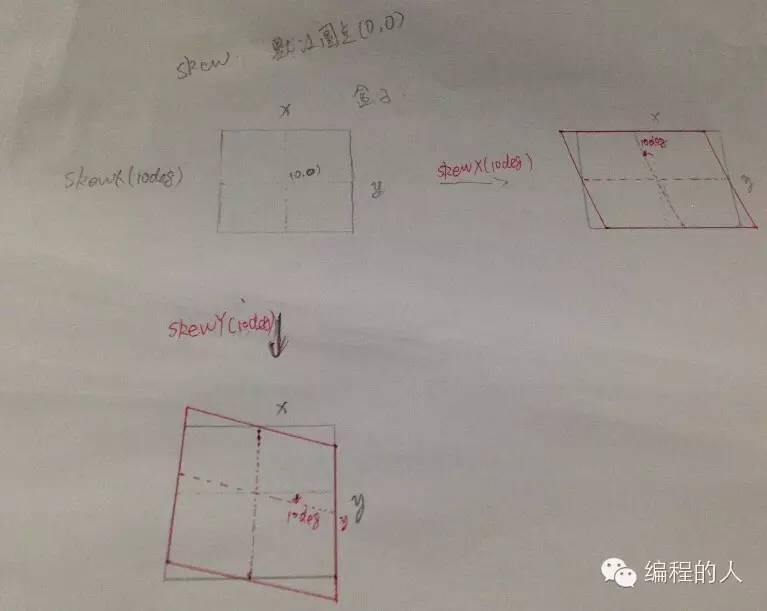 skew 默认圆点(0,0)
盒子
x
skewX(10deg)
(0,0)
y
skewX(10deg)
x
10deg
y
skewY(10deg)
x
10deg
y
y
编程的人